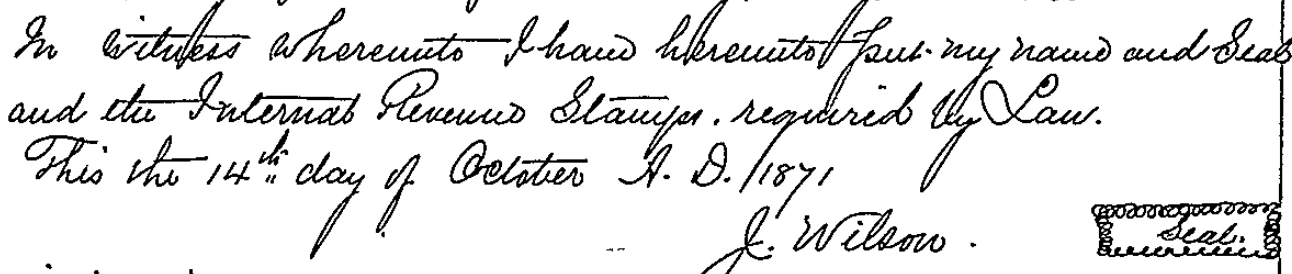 In witness whereunto I have hereunto put my name and Seal
and the Internal Revenue Stamps. required by Law.
This the 14th day of October A. D. /1871
J. Wilson. Seal.